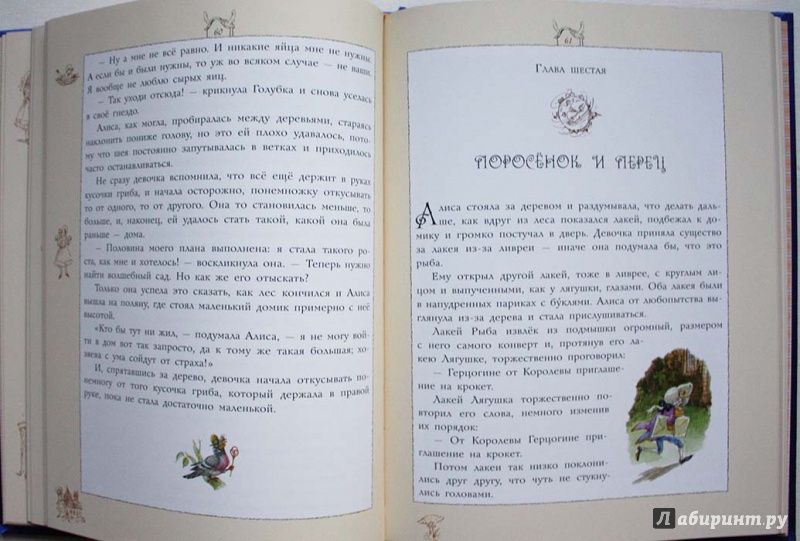 60
— Ну а мне не всё равно. И никакие яйца мне не нужны.
А если бы и были нужны, то уж во всяком случае — не ваши.
Я вообще не люблю сырых яиц.
— Так уходи отсюда! — крикнула Голубка и снова уселась
в своё гнездо.
Алиса, как могла, пробиралась между деревьями, стараясь
наклонить пониже голову, но это ей плохо удавалось, пото-
му что шея постоянно запутывалась в ветках и приходилось
часто останавливаться.
Не сразу девочка вспомнила, что всё ещё держит в руках
кусочки гриба, и начала осторожно, понемножку откусывать
то от одного, то от другого. Она то становилась меньше, то
больше, и, наконец, ей удалось стать такой, какой она была
раньше — дома.
— Половина моего плана выполнена: я стала такого ро-
ста, как мне и хотелось! — воскликнула она. — Теперь нужно
найти волшебный сад. Но как же его отыскать?
Только она успела это сказать, как лес кончился и Алиса
вышла на поляну, где стоял маленький домик примерно с неё
высотой.
«Кто бы тут ни жил, — подумала Алиса, — я не могу вой-
ти в дом вот так запросто, да к тому же такая большая; хо-
зяева с ума сойдут от страха!»
И, спрятавшись за дерево, девочка начала откусывать по-
немногу от того кусочка гриба, который держала в правой
руке, пока не стала достаточно маленькой.
61
Глава шестая
ПОРОСЁНОК И ПЕРЕЦ
Алиса стояла за деревом и раздумывала, что делать даль-
ше, как вдруг из леса показался лакей, подбежал к до-
мику и громко постучал в дверь. Девочка приняла существо
за лакея из-за ливреи — иначе она подумала бы, что это
рыба.
Ему открыл другой лакей, тоже в ливрее, с круглым ли-
цом и выпученными, как у лягушки, глазами. Оба лакея были
в напудренных париках с буклями. Алиса от любопытства вы-
глянула из-за дерева и стала прислушиваться.
Лакей Рыба извлёк из подмышки огромный, размером
с него самого конверт и, протянув его ла-
кею Лягушке, торжественно проговорил:
— Герцогине от Королевы приглаше-
ние на крокет.
Лакей Лягушка торжественно по-
вторил его слова, немного изменив
их порядок:
— От Королевы Герцогине при-
глашение на крокет.
Потом лакеи так низко поклони-
лись друг другу, что чуть не стукну-
лись головами.
Лабиринт.ру